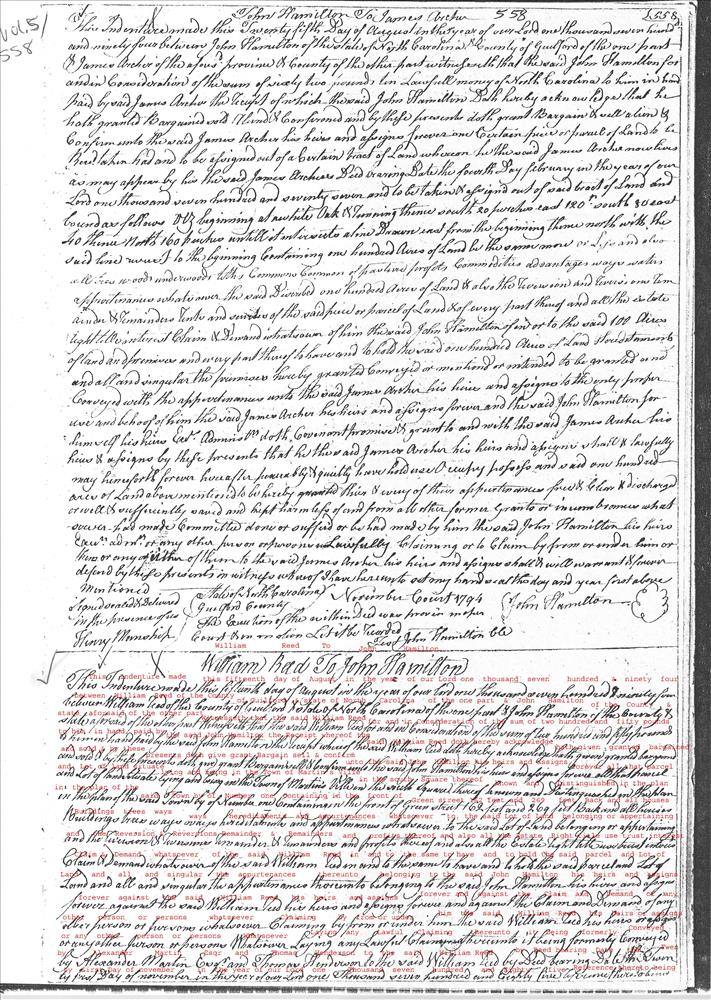 Vol. 5/
558
John Hamilton To James Archer 558
558
This Indenture made this Twenty fifth Day of August in the year of our Lord one thousand seven hundd
and ninety four between John Hamilton of the State of North Carolina & County of Guilford of the one part
& James Archer of the aforesd province & County of the other part witnesseth that the said John Hamilton for
and in Consideration of the sum of sixty two pounds ten Lawfull money of North Carolina to him in hand
paid by said James Archer the Receipt of which the said John Hamilton Doth hereby acknowledge that he
hath granted Bargained sold Aliend & Confirmed and by these presents doth grant Bargain & sell alien &
Confirm unto the said James Archer his heirs and assigns forever one Certain piece or parcel of Land to be
there taken had and to be assigned out of a Certain tract of Land whereon he the said James Archer now lives
as may appear by his the said James Archers Deed bearing Date the fourth Day february in the year of our
Lord one thousand seven hundred and seventy seven and to be taken & assignd out of said tract of Land and
bound as follows Viz beginning at a white Oak & running thence south 20 perches east 120 south 80 east
40 thence North 160 perches untill it intersects a line Drawn east from the beginning thence north with the
said line west to the beginning Containing one hundred Acres of Land be the same more or Less and also
all trees woods underwoods tithes Commons Common of pasture profits Commodities advantages ways waters
appurtenances whatsoever the said Described one hundred Acres of Land & also the Reversion and Reversions Rem
ainder & Remainders Rents and services of the said piece or parcel of Land & of every part thereof and all the estate
right title interest Claim & Demand whatsoever of him the said John Hamilton of in or to the said 100 Acres
of land and premises and every part thereof to have and to hold the said one hundred Acres of Land Hereditaments
and all and singular the premises hereby granted Conveyed or mentiond or intended to be granted and
Conveyed with the appurtenances unto the said James Archer his heirs and assigns to the only proper
use and behoof of him the said James Archer his heirs and assigns forever and the said John Hamilton for
himself his heirs Exrs. Adminrs doth Covenant promise & grant to and with the said James Archer his
heirs & assigns by these presents that he the said James Archer his heirs and assigns shall & lawfully
may henceforth forever hereafter peaceably & quietly have hold use Occupy possess and said one hundred
acres of Land above mentioned to be hereby granted this & every of their appurtenances free & Clear & discharged
or well & sufficiently saved and kept harmless of and from all other former Grants or incumbrances what
soever had made Committed done or sufferd or be had made by him the said John Hamilton his heirs
Exrs. admrs. or any other person or persons Lawfully Claiming or to Claim by from or under him or
them or any or either of them to the said James Archer his heirs and assigns shall & will warrant & forever
defend by these presents in witness whereof I have hereunto set my hand & seal the day and year first above
Mentioned
Signed sealed & Delivered
in the presence of us
Henry
State of North Carolina
Guilford County
November Court 1794
The Execution of the within Deed was proven in open
Court & on motion Let it be Recorded
Test John Hamilton CC
John Hamilton
William Reed To John Hamilton
This Indenture made this fifteenth day of August in the year of our lord one thousand seven hundred & ninety four
between William Reed of the County of Guilford & state of North Carolina of the one part & John Hamilton of the County &
state aforesaid of the other part Witnesseth that the said William Reed for and in Consideration of the sum of two hundred and fifty pounds
to him in hand paid by the said John Hamilton the Receipt whereof the said William Reed doth hereby acknowledge hath given granted bargained
and sold & by these presents doth give grant Bargain sell & confirm unto the said John Hamilton his heirs and assigns forever all that parcel
and Lot of land situate lying and being in the Town of Martin's Ville in the square thereof known and distinguished in the plan
in the plan of the said Town by of Number one containing in the front of Green street feet and 269 feet back and all houses
Buildings trees ways hereditaments and appurtenances whatsoever to the said Lot of Land belonging or appertaining
and the Reversion & Reversions Remainder & Remainders and profits thereof and also all the Estate Right title use trust interest
Claim & Demand whatsoever of the said William Reed in and to the same to have and to hold the said parcel and Lot of
Land and all and singular the appurtenances thereunto belonging to the said John Hamilton his heirs and assigns
forever against the said William Reed his heirs and assigns forever and against the Claim and Demand of any
other person or persons whatsoever Claiming by from or under him the said William Reed his heirs or assigns
or any other person or persons Whatsoever Laying any Lawful Claim thereunto it being formerly Conveyed
by Alexander Martin Esqr. and Thomas Henderson to the said William Reed by Deed bearing Date the Twen
ty first Day of November in the year of our lord one Thousand seven hundred and Eighty five